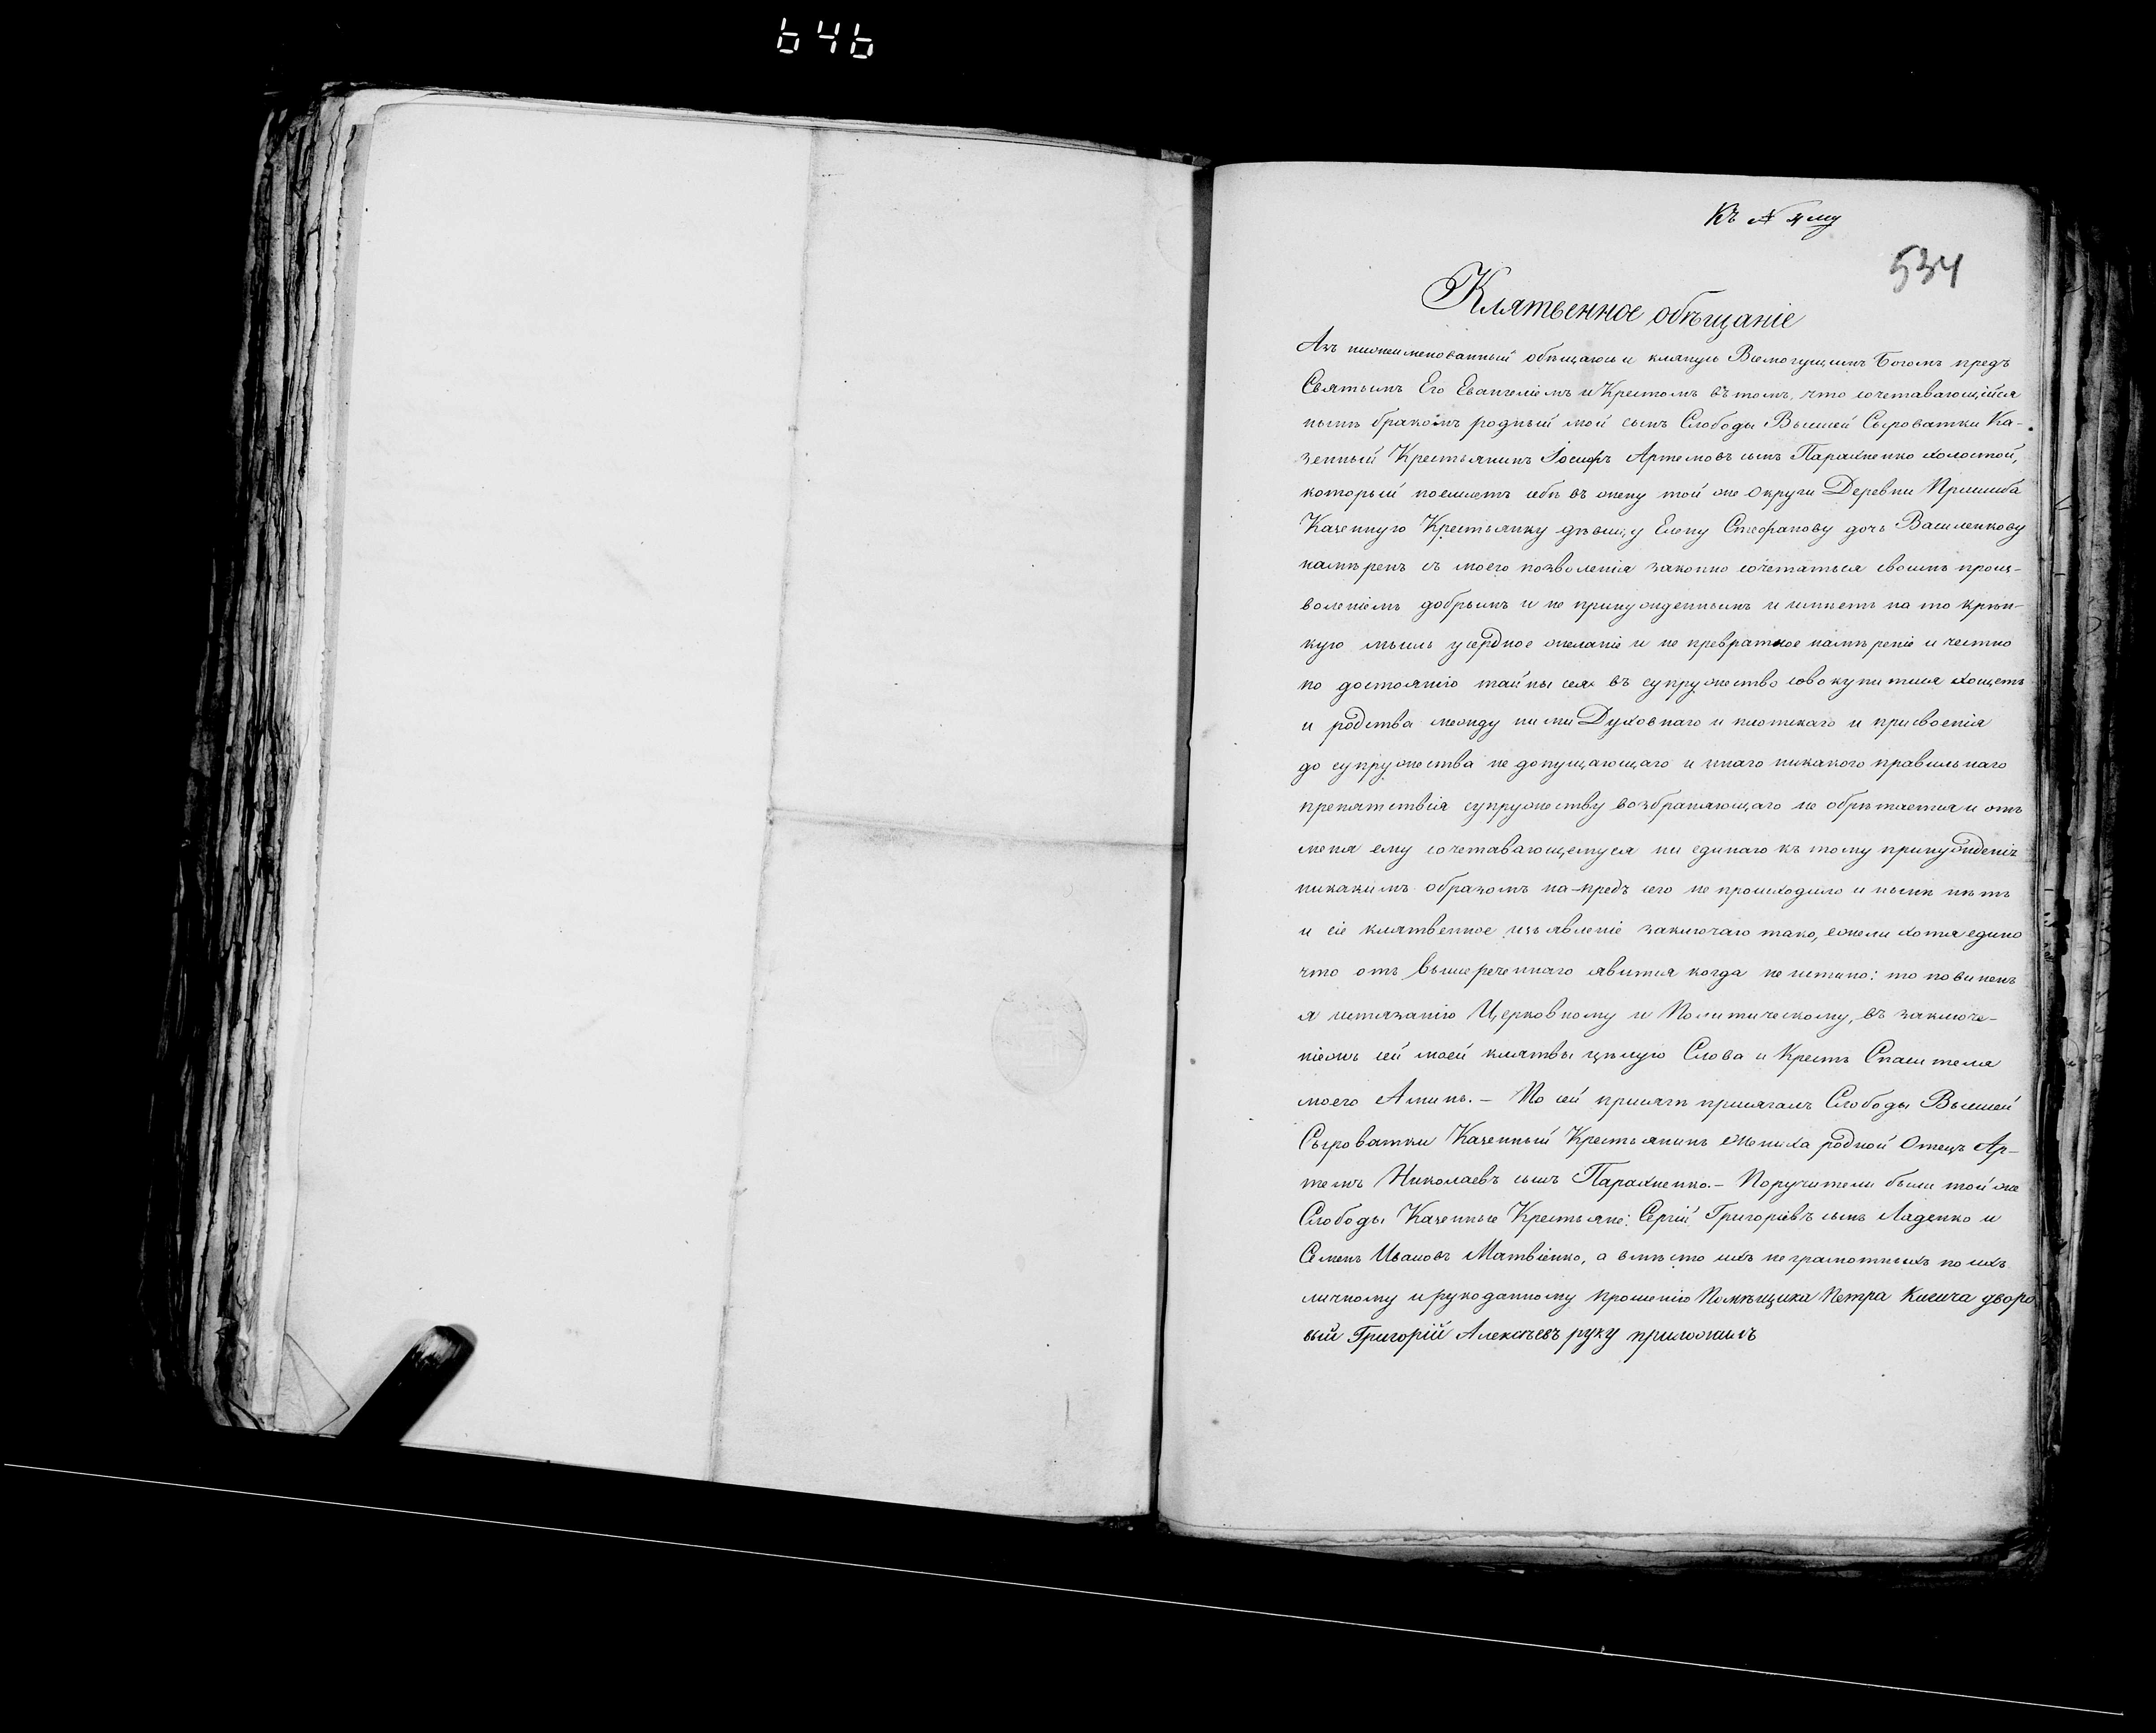 646
Къ № 4му
534
Клятвенное обѣщаніе
Азъ нижеименованный обѣщаюсь и клянусь Всемогущимъ Богомъ предъ
Святымъ Его Евангеліемъ и Крестомъ въ томъ, что сочетавающійся
нынѣ бракомъ родный мой сынъ Слободы Высшей Сыроватки Ка-
зенный Крестьянинъ Іосифъ Артемовъ сынъ Парахненко холостой,
который поемлетъ себѣ въ жену той же Округи Деревни Пришиба
Казенную Крестьянку дѣвицу Елену Стефанову дочь Василенкову
намѣренъ съ моего позволенія законно сочетаться своимъ произ-
воленіемъ добрымъ и не принужденнымъ и имѣетъ на то крѣп-
кую мысль усердное желаніе и не превратное намѣреніе и честно
по достоянію тайны сея въ супружество совокупитися хощетъ
и родства между ними Духовнаго и плотскаго и присвоенія
до супружества не допущающаго и инаго никакого правильнаго
препятствія супружеству возбраняющаго не обрѣтается и отъ
меня ему сочетавающемуся ни единаго къ тому принужденія
никакимъ образомъ на-предъ сего не происходило и нынѣ нѣтъ
и сіе клятвенное изъявленіе заключаю тако, ежели хотя едино
что отъ вышереченнаго явится когда не истино: то повиненъ
я истязанію Церковному и Политическому, въ заключе-
ніемъ сей моей клятвы цѣлую Слова и Крестъ Спасителя
моего Аминь. — По сей присягѣ присягалъ Слободы Высшей
Сыроватки Казенный Крестьянинъ жениха родной Отецъ Ар-
темъ Николаевъ сынъ Парахненко. — Поручители были той же
Слободы Казенные Крестьяне: Сергій Григоріевъ сынъ Ладенко и
Семенъ Ивановъ Матвіенко, а вмѣсто ихъ неграмотныхъ по ихъ
личному и рукоданному прошенію Помѣщика Петра Кисича дворо
вый Григорій Алексѣевъ руку приложилъ